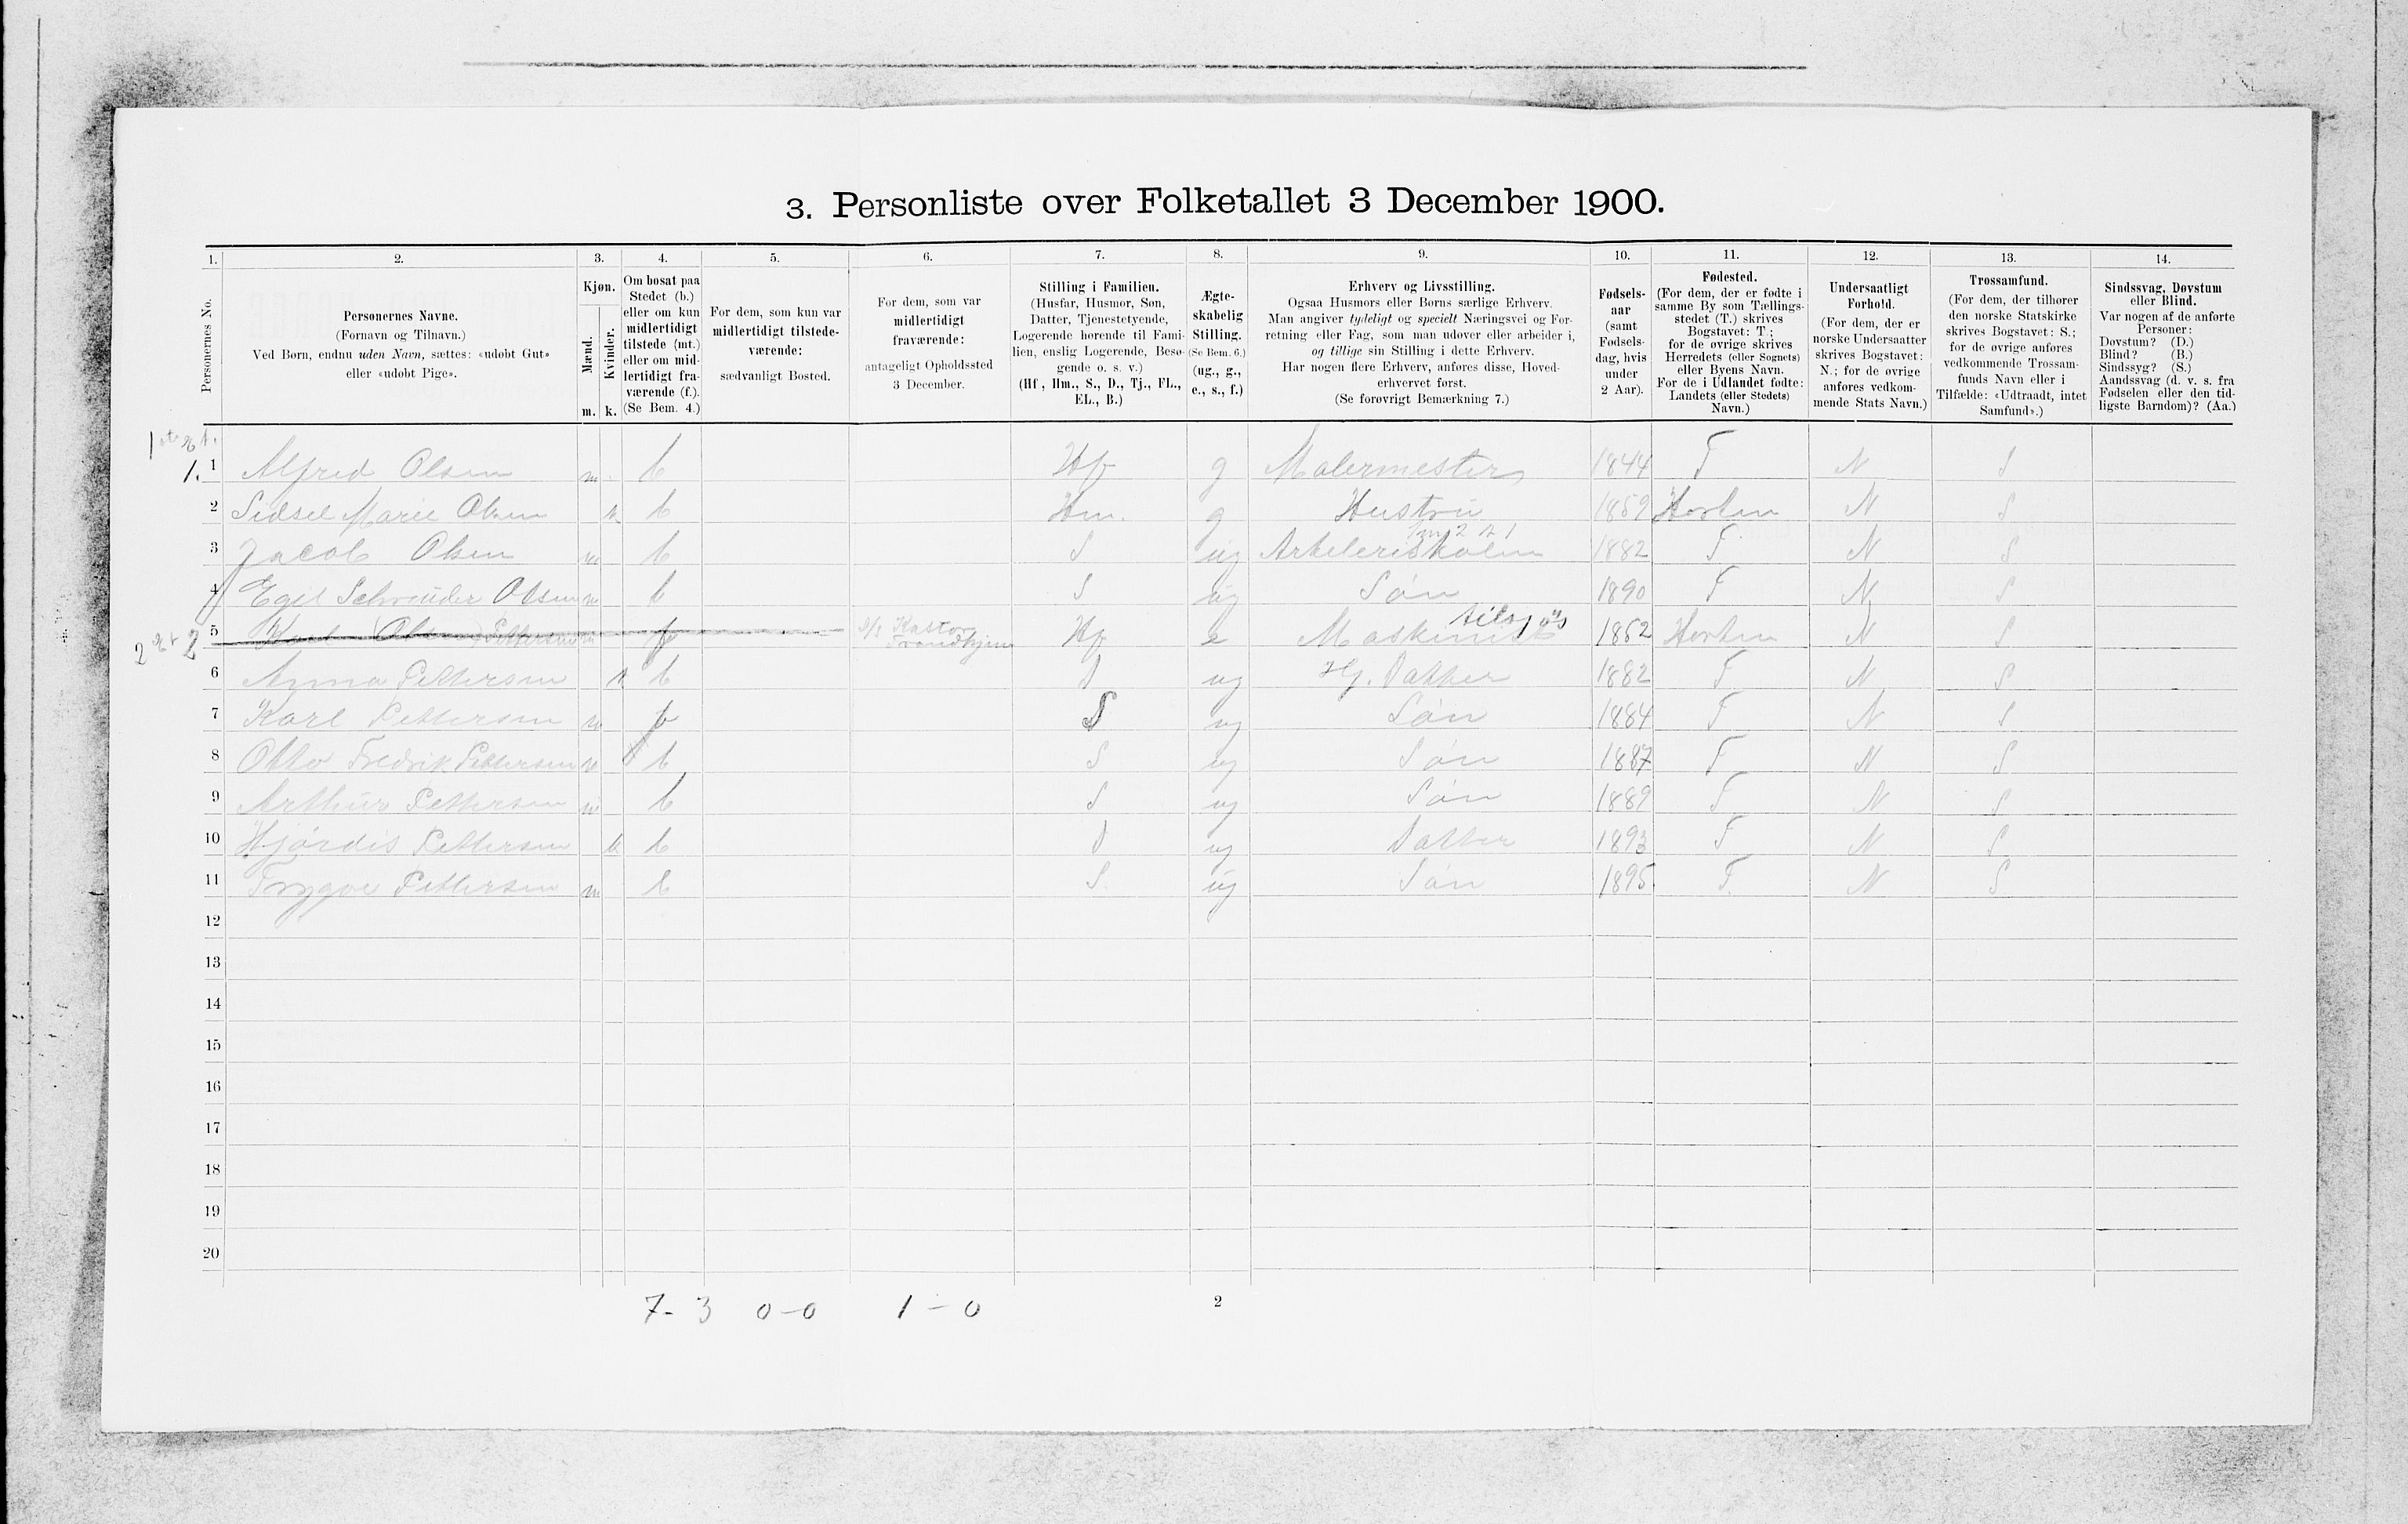 3. Personliste over Folketallet 3 December 1900.
1. 2. 3. 4. 5. 6. 7. 8. 9. 10. 11. 12. 13. 14.
Personernes No.
Personernes Navne.
(Fornavn og Tilnavn.)
Ved Børn, endnu uden Navn, sættes: «udøbt Gut»
eller «udøbt Pige».
Kjøn.
Mænd. Kvinder.
m. k.
Om bosat paa
Stedet (b.)
eller om kun
midlertidigt
tilstede (mt.)
eller om mid-
lertidigt fra-
værende (f.).
(Se Bem. 4.)
For dem, som kun var
midlertidigt tilstede-
værende:
sædvanligt Bosted.
For dem, som var
midlertidigt
fraværende:
antageligt Opholdssted
3 December.
Stilling i Familien.
(Husfar, Husmor, Søn,
Datter, Tjenestetyende,
Logerende hørende til Fami-
lien, enslig Logerende, Besø-
gende o. s. v.)
(Hf., Hm., S., D., Tj., FL.,
EL., B.)
Ægte-
skabelig
Stilling.
(Se Bem. 6.)
(ug., g.,
e., s., f.)
Erhverv og Livsstilling.
Ogsaa Husmors eller Børns særlige Erhverv.
Man angiver tydeligt og specielt Næringsvei og For-
retning eller Fag, som man udøver eller arbeider i,
og tillige sin Stilling i dette Erhverv.
Har nogen flere Erhverv, anføres disse, Hoved-
erhvervet først.
(Se forøvrigt Bemærkning 7.)
Fødsels-
aar
(samt
Fødsels-
dag, hvis
under
2 Aar).
Fødested.
(For dem, der er fødte i
samme By som Tællings-
stedet (T.) skrives
Bogstavet: T.;
for de øvrige skrives
Herredets (eller Sognets)
eller Byens Navn.
For de i Udlandet fødte:
Landets (eller Stedets)
Navn.)
Undersaatligt
Forhold.
(For dem, der er
norske Undersaatter
skrives Bogstavet:
N.; for de øvrige
anføres vedkom-
mende Stats Navn.)
Trossamfund.
(For dem, der tilhører
den norske Statskirke
skrives Bogstavet: S.;
for de øvrige anføres
vedkommende Trossam-
funds Navn eller i
Tilfælde: «Udtraadt, intet
Samfund».)
Sindssvag, Døvstum
eller Blind.
Var nogen af de anførte
Personer:
Døvstum? (D.)
Blind? (B.)
Sindssyg? (S.)
Aandssvag (d. v. s. fra
Fødselen eller den tid-
ligste Barndom)? (Aa.)
1. 1 Alfred Olsen m. b Hf g Malermester 1844 T N S
2 Sidsel Marie Olsen k b Hm. g Hustru 1859 Horten N S
3 Jacob Olsen m b S ug 1882 T N S
4 Egil Schrøuder Olsen m b S ug Søn 1890 T N S
2 5 Karl Olsen Pettersen m f Kastor Trondhjem Hf e Maskinist tilsjøs 1852 Horten N S
6 Anna Pettersen k b D ug Hj. Datter 1882 T N S
7 Karl Pettersen m b S ug Søn 1884 T N S
8 Otto Fredrik Pettersen m b S ug Søn 1887 T N S
9 Arthur Pettersen m b S ug Søn 1889 T N S
10 Hjørdis Pettersen k b D ug Datter 1893 T N S
11 Trygve Pettersen m b S. ug Søn 1895 T. N S
12
13
14
15
16
17
18
19
20
7-3 0-0 1-0 2